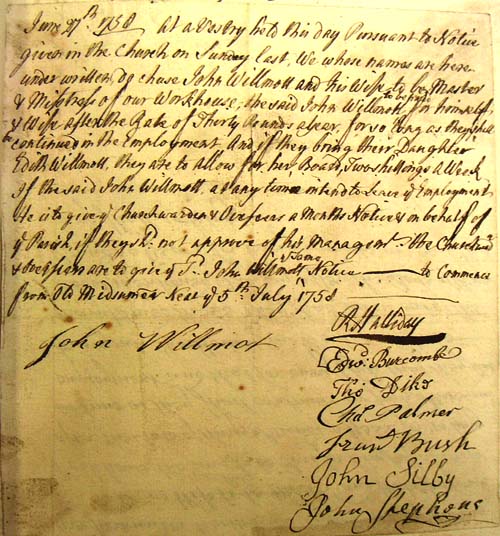 June 27th 1758 At a Vestry held this day Pursuant to Notice
given in the Church on Sunday last, We whose names are here
under written, do chuse John Willmott and his Wife to be Master
& Mistress of our Workhouse, the said John Willmott for himself
& Wife after the Rate of Thirty Pounds a year, for so long as they
continued in the Employment And if they bring their Daughter
Edith Willmott, they are to allow for her Board, Two shillings a Week
If the said John Willmott, at any time intend to leave ye Employment
He is to give ye Churchwarden & Overseers a Months Notice & on behalf of
ye Parish, if they shd. not approve of his Managemt. the Churchwn
& Overseers are to give ye Sd. John Willmott Same Notice to Commence
from Old Midsumer Next ye 5th July 1758
John Willmot
R Halliday
Edwd. Burcombe
Thos Dike
Chas. Palmer
Frans Bush
John Silby
John Stephens